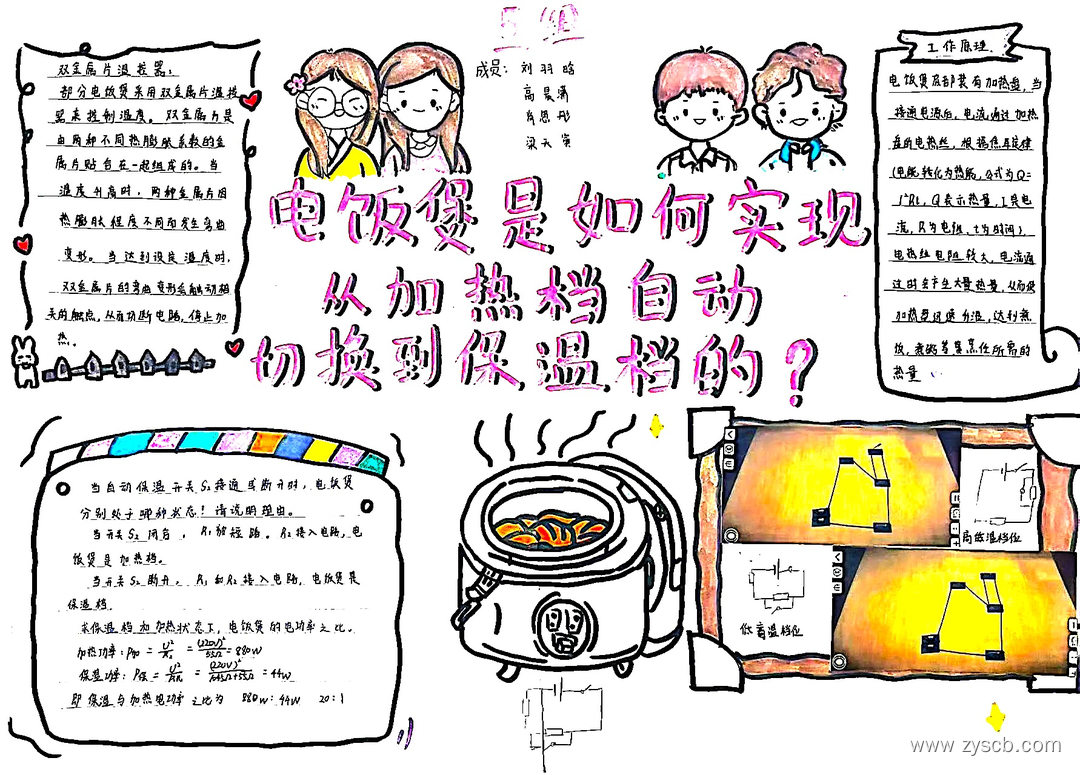 5组
成员：刘羽晗
高晨漪
肖思彤
梁天寅
电饭煲是如何实现
从加热档自动
切换到保温档的？
双金属片温控器：
部分电饭煲采用双金属片温控
器来控制温度。双金属片是
由两种不同热膨胀系数的金
属片贴合在一起组成的。当
温度升高时，两种金属片因
热膨胀程度不同而发生弯曲
变形。当达到设定温度时，
双金属片的弯曲变形会触动相
关的触点，从而切断电路，停止加
热。
工作原理
电饭煲底部装有加热盘，当
接通电源后，电流通过加热
盘的电热丝，根据焦耳定律
(电能转化为热能，公式为Q=
I²Rt，Q表示热量，I是电
流，R为电阻，t为时间)
电热丝电阻较大，电流通
过时会产生大量热量，从而使
加热盘迅速升温，达到煮
饭，煮粥等烹饪所需的
热量
当自动保温开关S₂接通或断开时，电饭煲
分别处于哪种状态？请说明理由。
当开关S₂闭合，R₁被短路。R₂接入电路，电
饭煲是加热档。
当开关S₂断开，R₁和R₂接入电路，电饭煲是
保温档。
求保温档和加热状态下，电饭煲的电功率之比。
加热功率：P加 = U²/R₂ = (220V)²/55Ω = 880W
保温功率：P保 = U²/R总 = (220V)²/1045Ω+55Ω = 44W
即保温与加热电功率之比为 880W：44W 20：1
局低温档位
低高温档位
www.zyscb.com